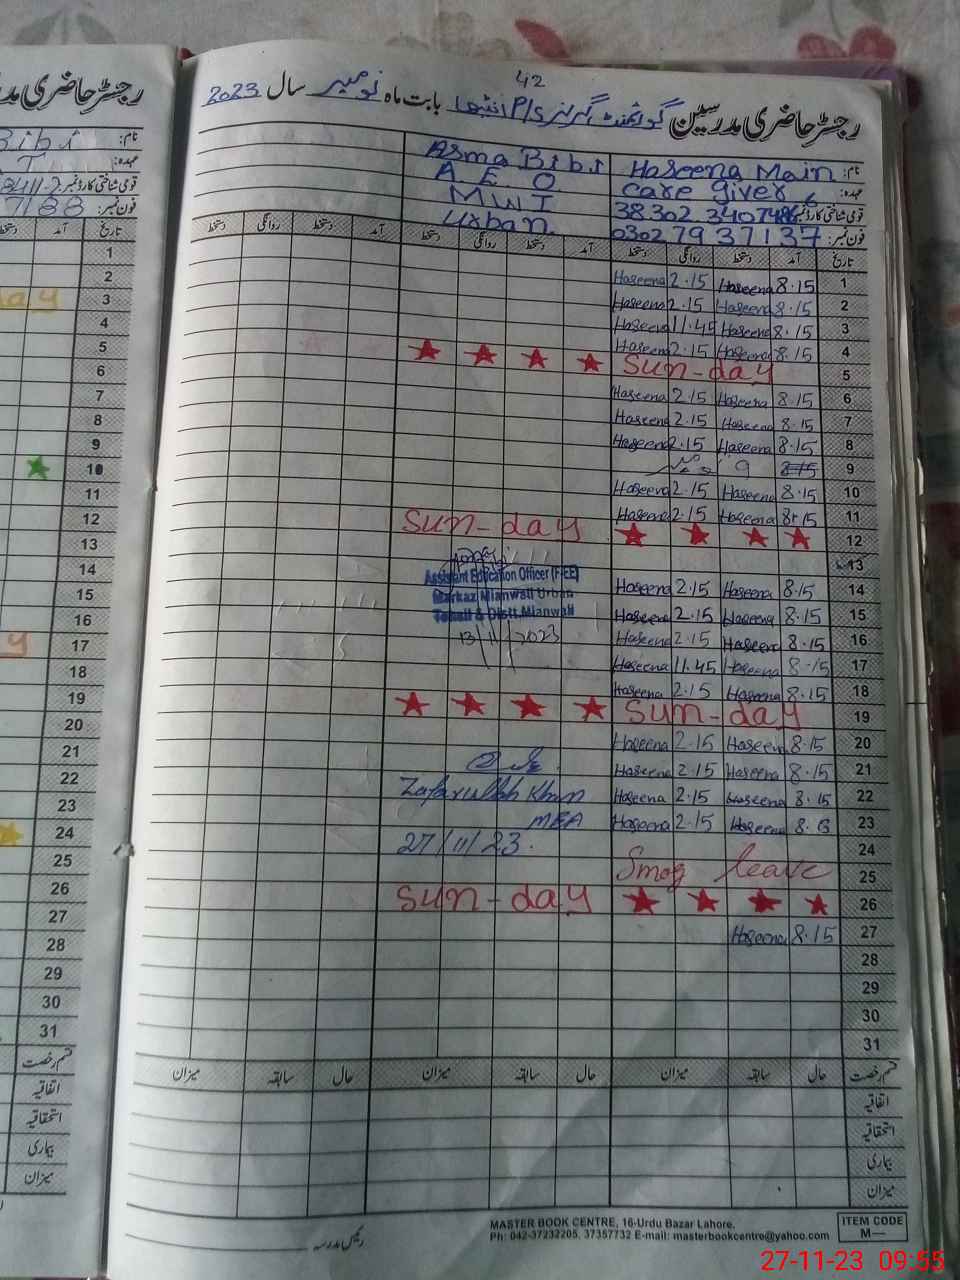 42
رجسٹر حاضری مدرسین گورنمنٹ گرلز P/S بابت ماہ نومبر سال 2023
نام: Haseena Main Asma Bibi
عہدہ: care giver A E O
قومی شناختی کارڈ نمبر: 38302 3407486 6 MWI
فون نمبر: 0302 7937137 Urban
تاریخ آمد دستخط روانگی دستخط آمد دستخط روانگی دستخط آمد دستخط روانگی دستخط
1 8.15 Haseena 2.15 Haseena
2 8.15 Haseena 2.15 Haseena
3 8.15 Haseena 11.45 Haseena
4 8.15 Haseena 2.15 Haseena
5 Sun-day
6 8.15 Haseena 2.15 Haseena
7 8.15 Haseena 2.15 Haseena
8 8.15 Haseena 2.15 Haseena
9 8.15 9 نومبر
10 8.15 Haseena 2.15 Haseena
11 8.15 Haseena 2.15 Haseena
12 Sun-day
13
Assistant Education Officer (F-EE)
Markaz Mianwali Urban
Tehsil & Distt. Mianwali
13/11/2023
14 8.15 Haseena 2.15 Haseena
15 8.15 Haseena 2.15 Haseena
16 8.15 Haseena 2.15 Haseena
17 8.15 Haseena 11.45 Haseena
18 8.15 Haseena 2.15 Haseena
19 Sun-day
20 8.15 Haseena 2.15 Haseena
21 8.15 Haseena 2.15 Haseena
22 8.15 Haseena 2.15 Haseena
23 Haseena 2.15 Haseena
Zafarullah Khan
MEA
27/11/23.
24
25 Smog leave
26 Sun-day
27 8.15 Haseena
28
29
30
31
قسم رخصت حال سابقہ میزان حال سابقہ میزان حال سابقہ میزان
اتفاقیہ
استحقاقیہ
بیماری
میزان
رئیس مدرسہ
MASTER BOOK CENTRE, 16-Urdu Bazar Lahore.
Ph: 042-37232205, 37357732 E-mail: masterbookcentre@yahoo.com
ITEM CODE
M—
رجسٹر حاضری
نام: Bibi
عہدہ:
قومی شناختی کارڈ نمبر:
فون نمبر: 7188
تاریخ آمد
1
2
3
4
5
6
7
8
9
10
11
12
13
14
15
16
17
18
19
20
21
22
23
24
25
26
27
28
29
30
31
قسم رخصت
اتفاقیہ
استحقاقیہ
بیماری
میزان
27-11-23 09:55